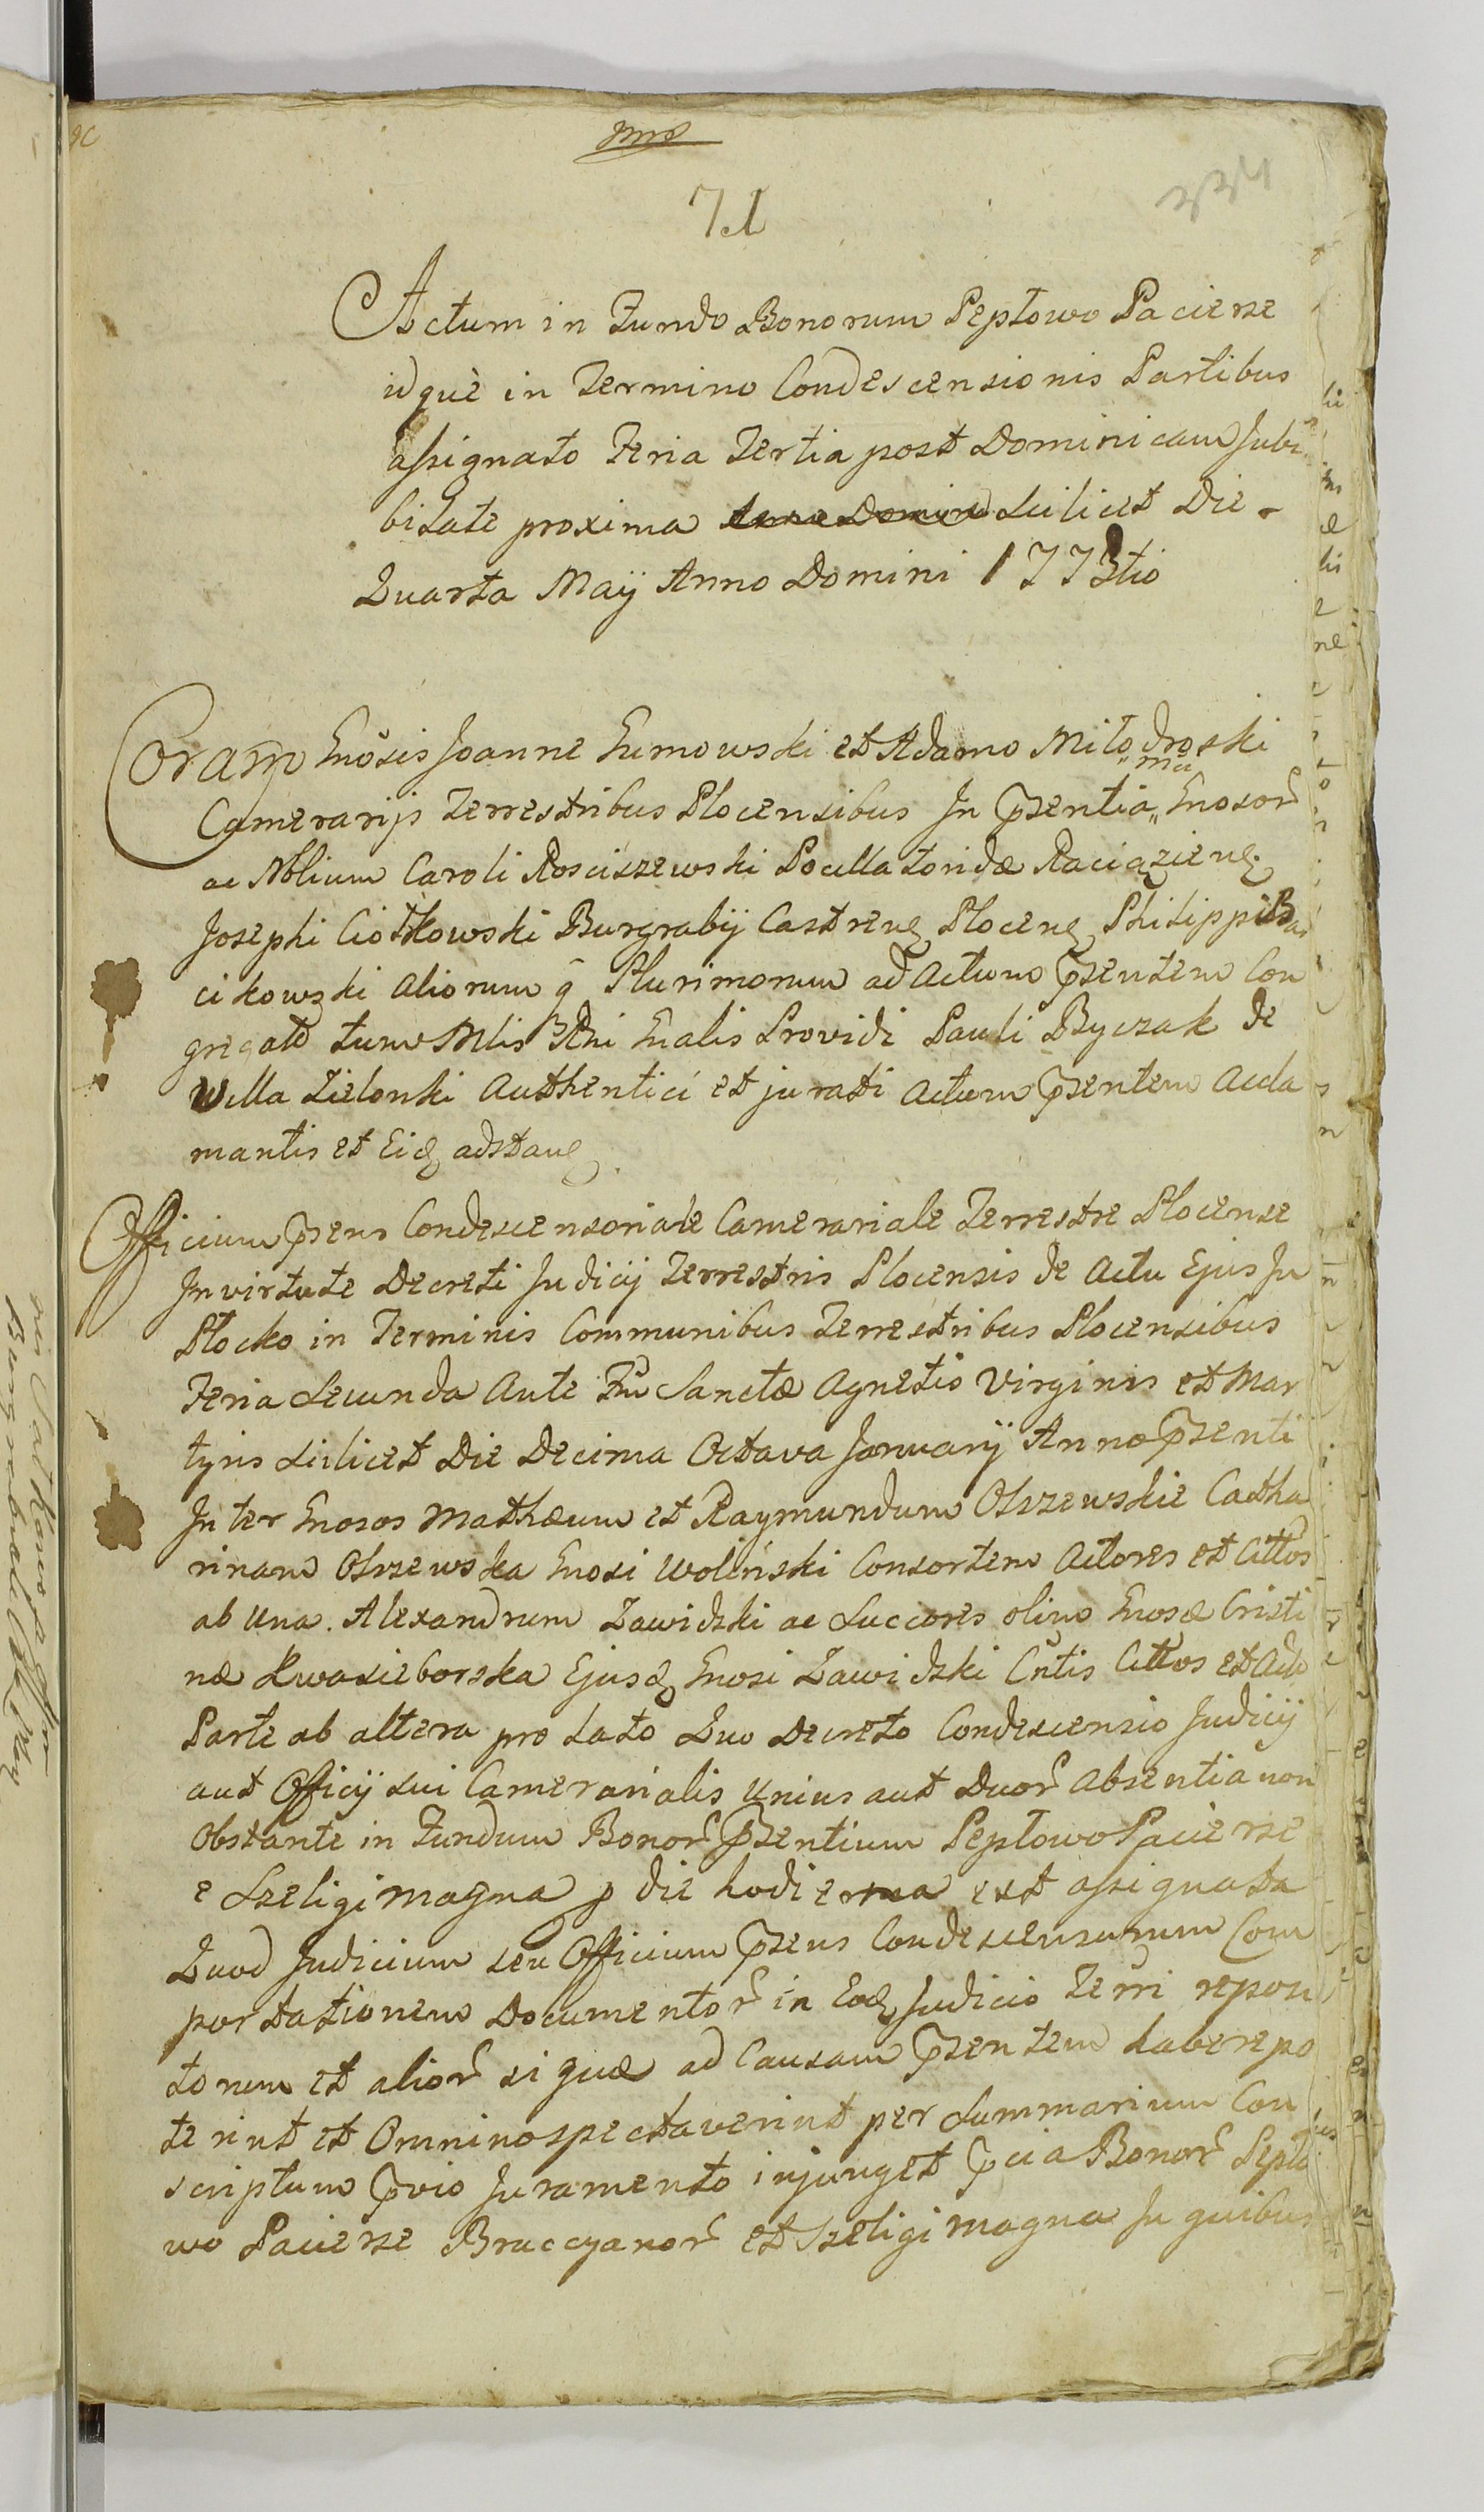 71
334
Actum in Fundo Bonorum Peptowo Pacierze
idquè in Termino Condescensionis Partibus
assignato Feria Tertia post Dominicam Jubi
bitate proxima Scilicet Die
Quarta Maÿ Anno Domini 1773tio
Coram Gnosis Joanne Gumowski et Adamo Miłodroski
Camerarijs Terrestribus Plocensibus In pzentia Gnosor
ac Nblium Caroli Rosciszewski Pocillatoridæ Raciązieng
Josephi Ciotkowski Burgrabÿ Castreng Ploceng Philippi Bar
cikowski Aliorum q Plurimorum ad Actum pzentem Con
gregato tum Mlis Rni Gnalis Providi Pauli Byczak de
Villa Zielonki Authentici et jurati Actum pzentem Accla
mantis et Eidg adstang
Officium pzens Condescensoriale Camerariale Terrestre Plocense
In virtute Decreti Judicÿ Terrestris Plocensis de Actu Ejus In
Płocko in Terminis Communibus Terrestribus Plocensibus
Feria Secunda Ante Ftũ Sanctæ Agnetis Virginis et Mar
tyris Scilicet Die Decima Octava Januarÿ Anno pzenti
Inter Gnosos Mathæum et Raymundum Olszewskie Catha
rinam Olszewska Gnosi Woliński Consortem Actores et Cittos
ab Una. Alexandrum Zawidzki ac Succores olim Gnosæ Cristi
næ Kwasieborska Ejusdg Gnosi Zawidzki Cntis Cittos et Acto
Parte ab altera pro lato Quo Decreto Condescensio Judicÿ
aut Officÿ sui Camerarialis Unius aut Duor Absentia non
Obstante in Fundum Bonor pzentium Peptowo Pacierze
e Szeligi magna p die hodierna est assignata
Quod Judicium seu Officium pzens Condescensurum Com
portationem Documentor in Eodg Judicio Terri reposi
torum et alior si quæ ad Causam pzentem habere po
terint et Omnino spectaverint per Summarium Con
scriptum pvio Juramento injunget pcia Bonor Pepto
wo Pacierze Braccyanor et Szeligi magna In quibus